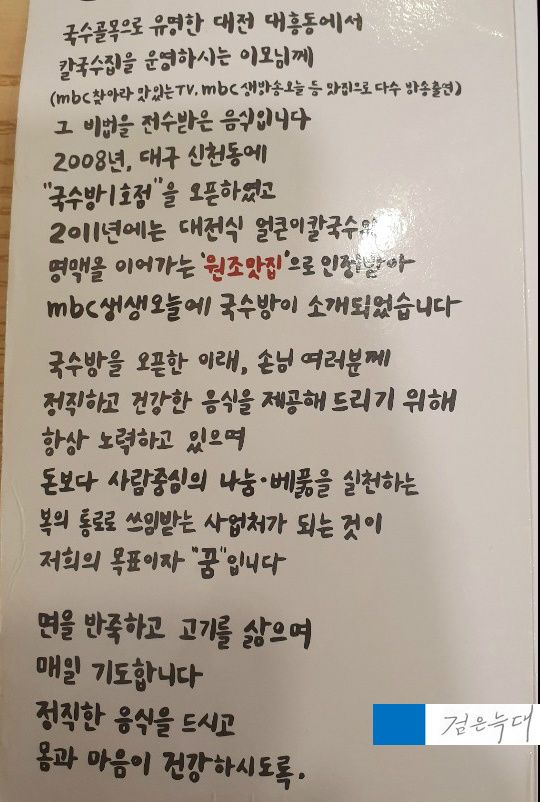 국수골목으로 유명한 대전 대흥동에서
칼국수집을 운영하시는 이모님께
(mbc찾아라 맛있는TV, mbc생방송오늘 등 맛집으로 다수 방송출연)
그 비법을 전수받은 음식입니다
2008년, 대구 신천동에
"국수방1호점"을 오픈하였고
2011년에는 대전식 얼큰이칼국수의
명맥을 이어가는 '원조맛집'으로 인정받아
mbc생생오늘에 국수방이 소개되었습니다
국수방을 오픈한 이래, 손님 여러분께
정직하고 건강한 음식을 제공해 드리기 위해
항상 노력하고 있으며
돈보다 사람중심의 나눔·베풂을 실천하는
복의 통로로 쓰임받는 사업처가 되는 것이
저희의 목표이자 "꿈"입니다
면을 반죽하고 고기를 삶으며
매일 기도합니다
정직한 음식을 드시고
몸과 마음이 건강하시도록.
검은늑대